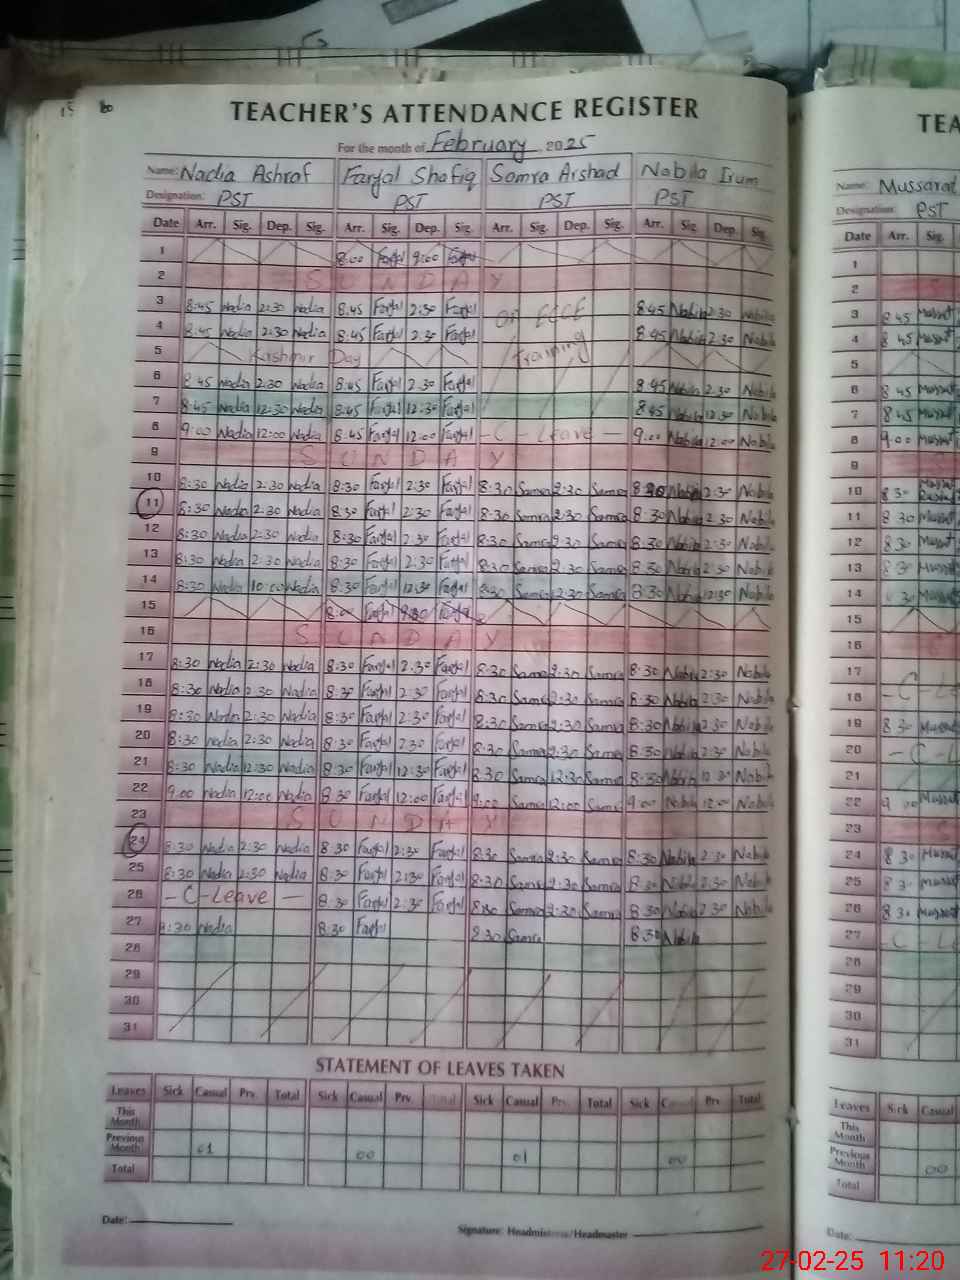 15
TEACHER'S ATTENDANCE REGISTER
TEA
For the month of February, 2025
Name: Nadia Ashraf Farjal Shafiq Samra Arshad Nabila Irum
Name: Mussarat
Designation: PST PST PST PST
Designation: PST
Date Arr. Sig. Dep. Sig. Arr. Sig. Dep. Sig. Arr. Sig. Dep. Sig. Arr. Sig. Dep. Sig.
Date Arr. Sig.
1 8:00 Farjal 9:00 Farjal
1
2 SUNDAY
2
3 8:45 Nadia 2:30 Nadia 8:45 Farjal 2:30 Farjal on ECCE 8:45 Nabila 2:30 Nabila
3 8 45 Mussrat
4 8:45 Nadia 2:30 Nadia 8:45 Farjal 2:30 Farjal Training 8:45 Nabila 2:30 Nabila
4 8 45 Mussrat
5 Kashmir Day
5
6 8 45 Nadia 2:30 Nadia 8:45 Farjal 2:30 Farjal 8:45 Nabila 2:30 Nabila
6 8 45 Mussrat
7 8:45 Nadia 12:30 Nadia 8:45 Farjal 12:30 Farjal 8:45 Nabila 12:30 Nabila
7 8:45 Mussrat
8 9:00 Nadia 12:00 Nadia 8:45 Farjal 12:00 Farjal - C - Leave - 9:00 Nabila 12:00 Nabila
8 9:00 Mussrat
9 SUNDAY
9
10 8:30 Nadia 2:30 Nadia 8:30 Farjal 2:30 Farjal 8:30 Samra 2:30 Samra 8:30 Nabila 2:30 Nabila
10 8 30
11 8:30 Nadia 2:30 Nadia 8:30 Farjal 2:30 Farjal 8:30 Samra 2:30 Samra 8:30 Nabila 2:30 Nabila
11 8 30 Mussrat
12 8:30 Nadia 2:30 Nadia 8:30 Farjal 2:30 Farjal 8:30 Samra 2:30 Samra 8:30 Nabila 2:30 Nabila
12 8:30 Mussrat
13 8:30 Nadia 2:30 Nadia 8:30 Farjal 2:30 Farjal 8:30 Samra 2:30 Samra 8:30 Nabila 2:30 Nabila
13 8 30 Mussrat
14 8:30 Nadia 10:00 Nadia 8:30 Farjal 12:30 Farjal 8:30 Samra 12:30 Samra 8:30 Nabila 12:30 Nabila
14 8 30 Mussrat
15 8:00 Farjal 9:30 Farjal
15
16 SUNDAY
16
17 8:30 Nadia 2:30 Nadia 8:30 Farjal 2:30 Farjal 8:30 Samra 2:30 Samra 8:30 Nabila 2:30 Nabila
17
18 8:30 Nadia 2:30 Nadia 8:30 Farjal 2:30 Farjal 8:30 Samra 2:30 Samra 8:30 Nabila 2:30 Nabila
18 - C - Le
19 8:30 Nadia 2:30 Nadia 8:30 Farjal 2:30 Farjal 8:30 Samra 2:30 Samra 8:30 Nabila 2:30 Nabila
19 8 30 Mussrat
20 8:30 Nadia 2:30 Nadia 8:30 Farjal 2:30 Farjal 8:30 Samra 2:30 Samra 8:30 Nabila 2:30 Nabila
20 - C - L
21 8:30 Nadia 12:30 Nadia 8:30 Farjal 12:30 Farjal 8:30 Samra 12:30 Samra 8:30 Nabila 12:30 Nabila
21
22 9:00 Nadia 12:00 Nadia 8:30 Farjal 12:00 Farjal 9:00 Samra 12:00 Samra 9:00 Nabila 12:00 Nabila
22 9:00 Mussrat
23 SUNDAY
23
24 8:30 Nadia 2:30 Nadia 8:30 Farjal 2:30 Farjal 8:30 Samra 2:30 Samra 8:30 Nabila 2:30 Nabila
24 8 30 Mussrat
25 8:30 Nadia 2:30 Nadia 8:30 Farjal 2:30 Farjal 8:30 Samra 2:30 Samra 8:30 Nabila 2:30 Nabila
25 8 30 Mussrat
26 - C-Leave - 8:30 Farjal 2:30 Farjal 8:30 Samra 2:30 Samra 8 30 Nabila 2:30 Nabila
26 8 30 Mussrat
27 8:30 Nadia 8:30 Farjal 8:30 Samra 8:30 Nabila
27 - C - Le
28
28
29
29
30
30
31
31
STATEMENT OF LEAVES TAKEN
Leaves Sick Casual Prv. Total Sick Casual Prv. Total Sick Casual Prv. Total Sick Casual Prv. Total
Leaves Sick Casual
This Month
This Month
Previous Month 01 00 01 00
Previous Month 00
Total
Total
Date:
Signature: Headmistress/Headmaster
Date:
27-02-25 11:20